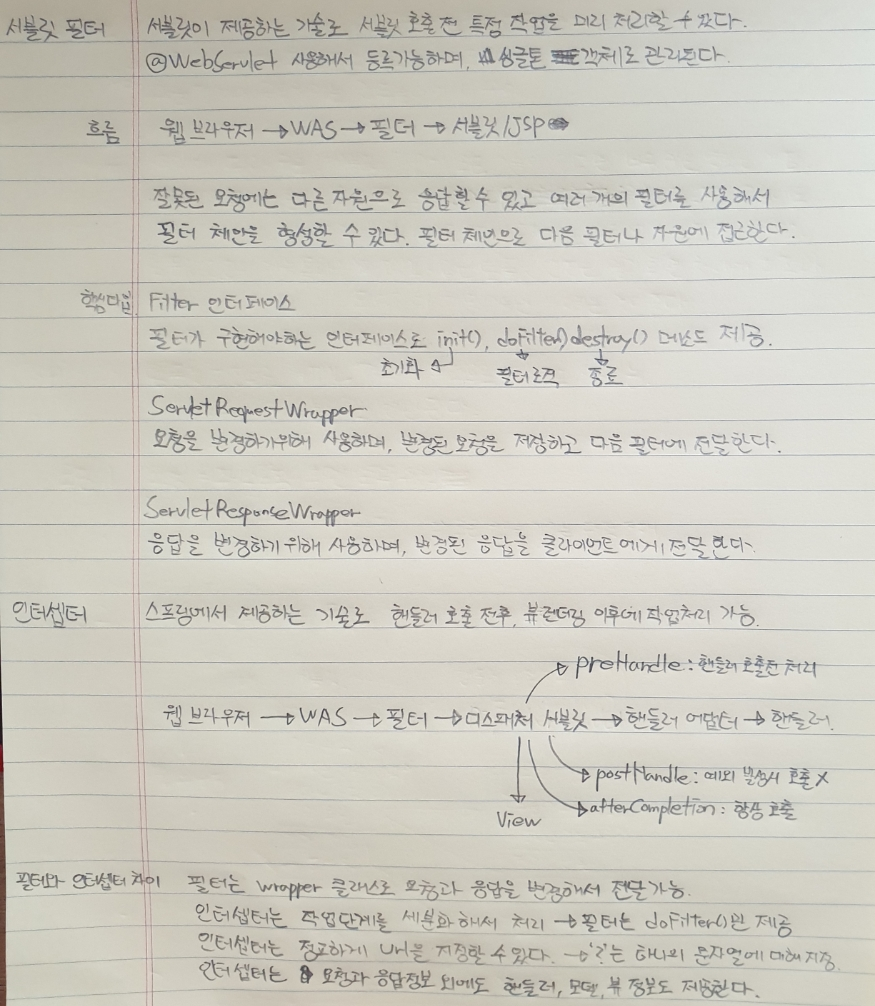 서블릿 필터 서블릿이 제공하는 기술로 서블릿 호출 전 특정 작업을 미리 처리할 수 있다.
@WebServlet 사용해서 등록가능하며, 싱글톤 객체로 관리된다.
흐름 웹 브라우저 → WAS → 필터 → 서블릿/JSP
잘못된 요청에는 다른 자원으로 응답할 수 있고 여러 개의 필터를 사용해서
필터 체인을 형성할 수 있다. 필터 체인으로 다음 필터나 자원에 접근한다.
Filter 인터페이스
필터가 구현해야하는 인터페이스로 init(), doFilter() destroy() 메소드 제공.
초기화 필터로직 종료
ServletRequestWrapper
요청을 변경하기위해 사용하며, 변경된 요청을 저장하고 다음 필터에 전달한다.
ServletResponseWrapper
응답을 변경하기 위해 사용하며, 변경된 응답을 클라이언트에게 전달한다.
인터셉터 스프링에서 제공하는 기술로 핸들러 호출 전후, 뷰 렌더링 이후에 작업처리 가능.
preHandle : 핸들러 호출전 처리
웹 브라우저 → WAS → 필터 → 디스패처 서블릿 → 핸들러 어댑터 → 핸들러.
postHandle : 예외 발생시 호출 X
afterCompletion : 항상 호출
View
필터와 인터셉터 차이 필터는 wrapper 클래스로 요청과 응답을 변경해서 전달 가능.
인터셉터는 작업단계를 세분화 해서 처리 → 필터는 doFilter()만 제공
인터셉터는 정교하게 url을 지정할 수 있다. → '?'는 하나의 문자열에 대해 지정.
인터셉터는 요청과 응답정보 외에도 핸들러, 모델, 뷰 정보도 제공한다.